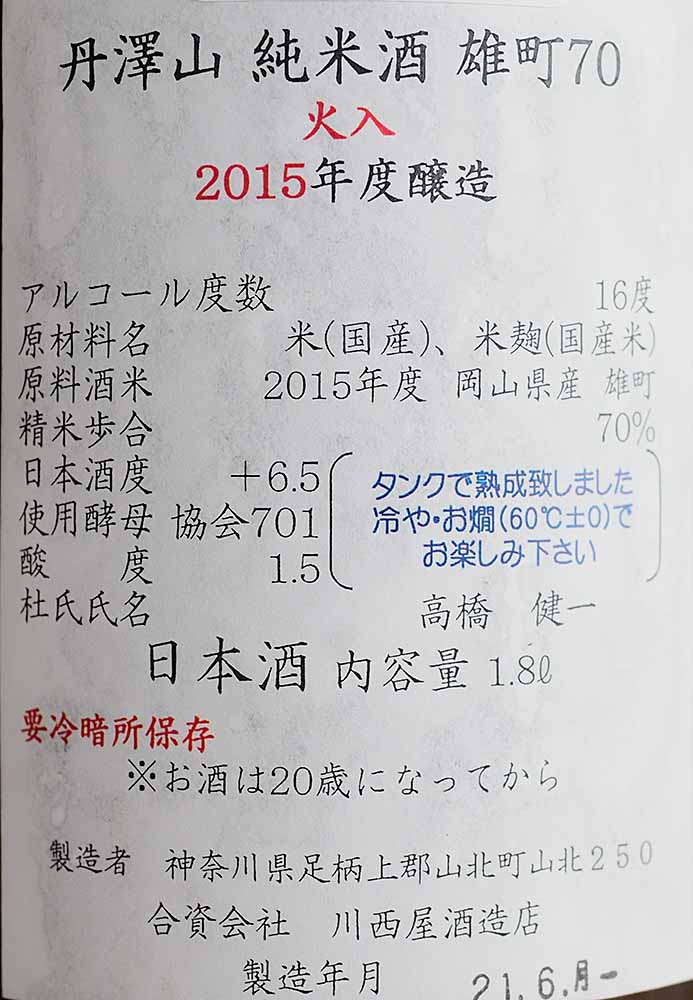 丹澤山 純米酒 雄町70
火入
2015年度醸造
アルコール度数 16度
原材料名 米(国産)、米麹(国産米)
原料酒米 2015年度 岡山県産 雄町
精米歩合 70%
日本酒度 +6.5
使用酵母 協会701
酸度 1.5
タンクで熟成致しました
冷や・お燗(60℃±0)で
お楽しみ下さい
杜氏氏名 高橋 健一
日本酒 内容量 1.8ℓ
要冷暗所保存
※お酒は20歳になってから
製造者 神奈川県足柄上郡山北町山北250
合資会社 川西屋酒造店
製造年月 21.6.月